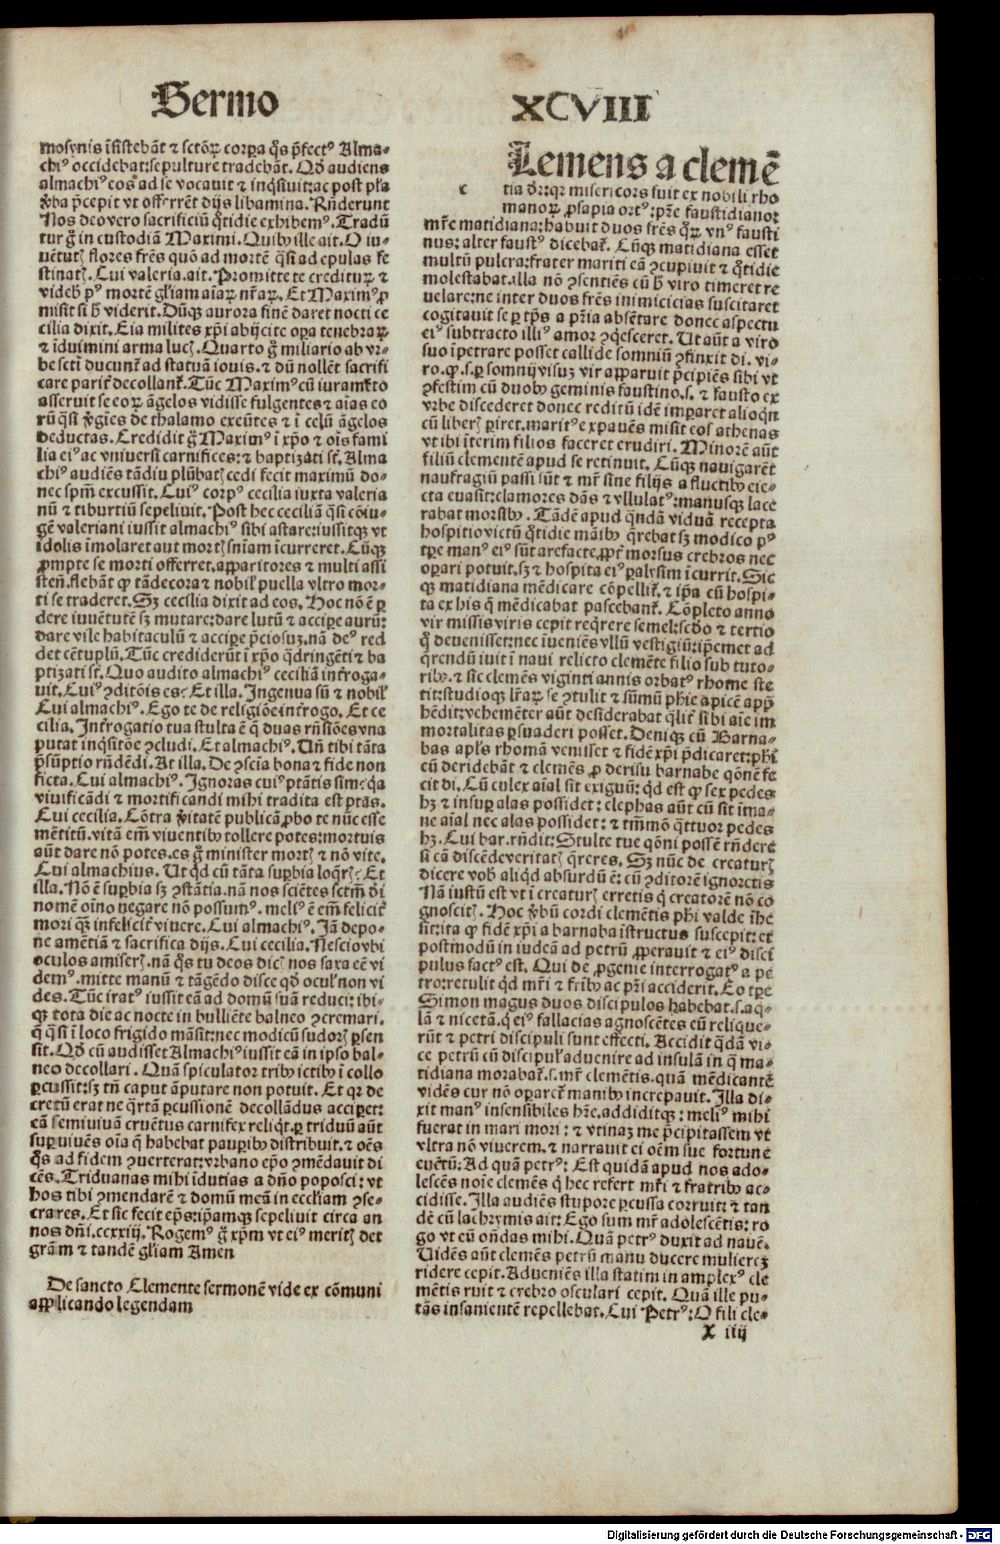 Sermo
XCVIII
mosynis ĩsistebãt ⁊ sctõꝝ corpa q̃s p̃fectꝰ Alma-
chiꝰ occidebat: sepulture tradebãt. Qđ audiens
almachiꝰ eos ad se vocauit ⁊ inq̃siuit: ac post pl̃a
ꝟba p̃cepit vt offerrẽt dijs libamina. Rñderunt
Nos deo vero sacrificiũ q̃tidie exhibemꝰ. Tradũ
tur g̃ in custodiã Maximi. Quibꝰ ille ait. O iu-
uẽtutꝭ flores frẽs quõ ad mortẽ q̃si ad epulas fe
stinatꝭ. Cui valeria. ait. Promitte te crediturꝝ ⁊
videbꝭ pꝰ mortẽ gl̃iam aĩaꝝ nr̃aꝝ. Et Maximꝰ ꝓ
misit si h̃ viderit. Dũqꝫ aurora finẽ daret nocti ce
cilia dixit. Eia milites xp̃i abijcite opa tenebraꝝ
⁊ ĩduimini arma lucꝭ. Quarto g̃ miliario ab vr-
be scti ducunt̃ ad statuã iouis. ⁊ dũ nollẽt sacrifi
care parit̃ decollant̃. Tũc Maximꝰ cũ iuramẽto
asseruit se eoꝝ ãgelos vidisse fulgentes ⁊ aĩas eo
rũ q̃si ꝟgĩes de thalamo exeũtes ⁊ ĩ celũ ãgelos
deductas. Credidit g̃ Maximꝰ ĩ xp̃o ⁊ oĩs fami
lia eiꝰ ac vniuersi carnifices: ⁊ baptizati st̃. Alma
chiꝰ audiẽs tãdiu plũbatꝭ cedi fecit maximũ do-
nec spm̃ excussit. Cuiꝰ corpꝰ cecilia iuxta valeria
nũ ⁊ tiburtiũ sepeliuit. Post hec ceciliã q̃si cõiu-
gẽ valeriani iussit almachiꝰ sibi astare: iussitqꝫ vt
idolis ĩmolaret aut mortꝭ snĩam ĩcurreret. Cũqꝫ
ꝓmpte se morti offerret. apparitores ⁊ multi assi
stẽñ. flebãt ꝙ tãdecora ⁊ nobil̃ puella vltro mor-
ti se traderet. Sꝫ cecilia dixit ad eos. Hoc nõ ẽ ꝑ
dere iuuẽtutẽ sꝫ mutare: dare lutũ ⁊ accipe aurũ:
dare vile habitaculũ ⁊ accipe p̃ciosuꝫ. nã deꝰ red
det cẽtuplũ. Tũc crediderũt ĩ xp̃o q̃dringẽti ⁊ ba
ptizati st̃. Quo audito almachiꝰ ceciliã int̃roga-
uit. Cuiꝰ ↄditõis es? Et illa. Ingenua sũ ⁊ nobil̃
Cui almachiꝰ. Ego te de religiõe int̃rogo. Et ce
cilia. Int̃rogatio tua stulta ẽ q̃ duas rñsiões vna
putat inq̃sitõe ↄcludi. Et almachiꝰ. Uñ tibi tãta
p̃sũptio rñdẽdi. At illa. De ↄscia bona ⁊ fide non
ficta. Cui almachiꝰ. Ignoras cuiꝰ ptãtis sim: q̃a
viuificãdi ⁊ mortificandi mihi tradita est ptãs.
Cui cecilia. Cõtra ꝟitatẽ publicã ꝓbo te nũc esse
mẽtitũ. vitã em̃ viuentibꝰ tollere potes: mortuis
aũt dare nõ potes. es g̃ minister mortꝭ ⁊ nõ vite.
Cui almachius. Ut q̃d cũ tãta supbia loq̃rꝭ? Et
illa. Nõ ẽ supbia sꝫ ↄstãtia. nã nos sciẽtes sctm̃ dĩ
nomẽ oĩno negare nõ possumꝰ. meliꝰ ẽ em̃ felicit̃
mori qꝫ infelicit̃ viuere. Cui almachiꝰ. Jã depo-
ne amẽtiã ⁊ sacrifica dijs. Cui cecilia. Nescio vbi
oculos amiserꝭ. nã q̃s tu deos dicꝭ nos saxa eẽ vi
demꝰ. mitte manũ ⁊ tãgẽdo disce qđ ocul̃ non vi
des. Tũc iratꝰ iussit eã ad domũ suã reduci: ibi-
qꝫ tota die ac nocte in bulliẽte balneo ↄcremari.
q̃ q̃si ĩ loco frigido mãsit: nec modicũ sudorꝭ ꝑsen
sit. Qđ cũ audisset Almachiꝰ iussit eã in ipso bal-
neo decollari. Quã spiculator tribꝰ ictibꝰ ĩ collo
ꝑcussit: sꝫ tñ caput ãputare non potuit. Et qꝛ de
cretũ erat ne q̃rtã ꝑcussionẽ decollãdus acciꝑet:
eã semiuiuã cruẽtus carnifex reliq̃t. ꝑ triduũ aũt
supuiuẽs oĩa q̃ habebat paupibꝰ distribuit. ⁊ oẽs
q̃s ad fidem ↄuerterat: vrbano ep̃o ↄmẽdauit di
cẽs. Triduanas mihi ĩdutias a dño poposci: vt
hos tibi ↄmendarẽ ⁊ domũ meã in eccl̃iam ↄse-
crares. Et sic fecit ep̃s: ip̃amqꝫ sepeliuit circa an
nos dñi. ccxxiij. Rogemꝰ g̃ xp̃m vt eiꝰ meritꝭ det
grãm ⁊ tandẽ gl̃iam Amen
De sancto Clemente sermonẽ vide ex cõmuni
applicando legendam
c
Lemens a clemẽ
tia dr̃: qꝛ misericors fuit ex nobili rho
manoꝝ ꝓsapia ortꝰ: pr̃e faustidiano:
mr̃e matidiana: habuit duos frẽs q̃ꝝ vnꝰ fausti
nus: alter faustꝰ dicebat̃. Cũqꝫ matidiana esset
multũ pulcra: frater mariti eã ↄcupiuit ⁊ q̃tidie
molestabat. illa nõ ↄsentiẽs cũ h̃ viro timeret re
uelare: ne inter duos frẽs inimicicias suscitaret
cogitauit se ꝑ tp̃s a pr̃ia absẽtare donec aspectu
eiꝰ subtracto illiꝰ amor ↄq̃esceret. Ut aũt a viro
suo ĩpetrare posset callide somniũ ↄfinxit di. vi-
ro. ꝙ. s. ꝑ somniũ visuꝫ vir apparuit p̃cipiẽs sibi vt
ↄfestim cũ duobꝰ geminis faustino. s. ⁊ fausto ex
vrbe discederet donec reditũ idẽ imparet alioq̃n
cũ liberꝭ piret. maritꝰ expauẽs misit eos athenas
vt ibi ĩterim filios faceret erudiri. Minorẽ aũt
filiũ clementẽ apud se retinuit. Cũqꝫ nauigarẽt
naufragiũ passi sũt ⁊ mr̃ sine filijs a fluctibꝰ eie-
cta euasit: clamores dãs ⁊ vllulatꝰ: manusqꝫ lace
rabat morsibꝰ. Tãdẽ apud q̃ndã viduã recepta
hospitio victũ q̃tidie mãibꝰ q̃rebat sꝫ modico pꝰ
tp̃e manꝰ eiꝰ sũt arefacte. ꝓpt̃ morsus crebros nec
opari potuit. sꝫ ⁊ hospita eiꝰ ꝑalysim ĩcurrit. Sic
qꝫ matidiana mẽdicare cõpellit̃. ⁊ ip̃a cũ hospi-
ta ex his q̃ mẽdicabat pascebant̃. Cõpleto anno
vir missis viris cepit req̃rere semel: scđo ⁊ tertio
q̃ deuenisset: nec ĩueniẽs vllũ vestigiũ: ip̃emet ad
q̃rendũ iuit ĩ naui relicto clemẽte filio sub tuto-
ribꝰ. ⁊ sic clemẽs viginti annis orbatꝰ rhome ste
tit: studioqꝫ lr̃aꝝ se ↄtulit ⁊ sũmũ phĩe apicẽ app̃
hẽdit: vehemẽter aũt desiderabat q̃lit̃ sibi aĩe im
mortalitas ꝑsuaderi posset. Deniqꝫ cũ Barna-
bas apl̃s rhomã venisset ⁊ fidẽ xp̃i p̃dicaret: phĩ
cũ deridebãt ⁊ clemẽs ꝓ derisu barnabe q̃õnẽ fe
cit di. Cũ culex aĩal sit exiguũ: q̃d est ꝙ sex pedes
hꝫ ⁊ insup alas possidet: elephas aũt cũ sit ĩma-
ne aĩal nec alas possidet: ⁊ tm̃mõ q̃ttuor pedes
hꝫ. Cui bar. rñdit: Stulte tue q̃õni possẽ rñdere
si cã discẽdeueritatꝭ q̃reres. Sꝫ nũc de creaturꝭ
dicere vobꝭ aliq̃d absurdũ ẽ: cũ ↄditorẽ ignoretis
Nã iustũ est vt ĩ creaturꝭ erretis q̃ creatorẽ nõ co
gnoscitꝭ. Hoc ꝟbũ cordi clemẽtis phĩ valde ĩhe
sit: ita ꝙ fidẽ xp̃i a barnaba ĩstructus suscepit: et
postmodũ in iudeã ad petrũ ꝓperauit ⁊ eiꝰ disci
pulus factꝰ est. Qui de ꝓgenie interrogatꝰ a pe
tro: retulit q̃d mr̃i ⁊ fribꝰ ac pr̃i acciderit. Eo tp̃e
Simon magus duos discipulos habebat. s. aq̃-
lã ⁊ nicetã. q̃ eiꝰ fallacias agnoscẽtes eũ relique-
rũt ⁊ petri discipuli sunt effecti. Accidit q̃dã vi-
ce petrũ cũ discipul̃ aduenire ad insulã in q̃ ma-
tidiana morabat̃. s. mr̃ clemẽtis. quã mẽdicantẽ
vidẽs cur nõ oparet̃ manibꝰ increpauit. Illa di-
xit manꝰ insensibiles hr̃e. addiditqꝫ: meliꝰ mihi
fuerat in mari mori: ⁊ vtinaꝫ me p̃cipitassem vt
vltra nõ viuerem. ⁊ narrauit ei oẽm sue fortune
euẽtũ. Ad quã petrꝰ: Est quidã apud nos ado-
lescẽs noĩe clemẽs q̃ hec refert mr̃i ⁊ fratribꝰ ac-
cidisse. Illa audiẽs stupore ꝑcussa corruit: ⁊ tan
dẽ cũ lachrymis ait: Ego sum mr̃ adolescẽtis: ro
go vt eũ oñdas mihi. Quã petrꝰ duxit ad nauẽ.
Uidẽs aũt clemẽs petrũ manu ducere mulierẽꝫ
ridere cepit. Adueniẽs illa statim in amplexꝰ cle
mẽtis ruit ⁊ crebro osculari cepit. Quã ille pu-
tãs insanientẽ repellebat. Cui Petrꝰ: O fili cle-
X iiij
Digitalisierung gefördert durch die Deutsche Forschungsgemeinschaft - DFG